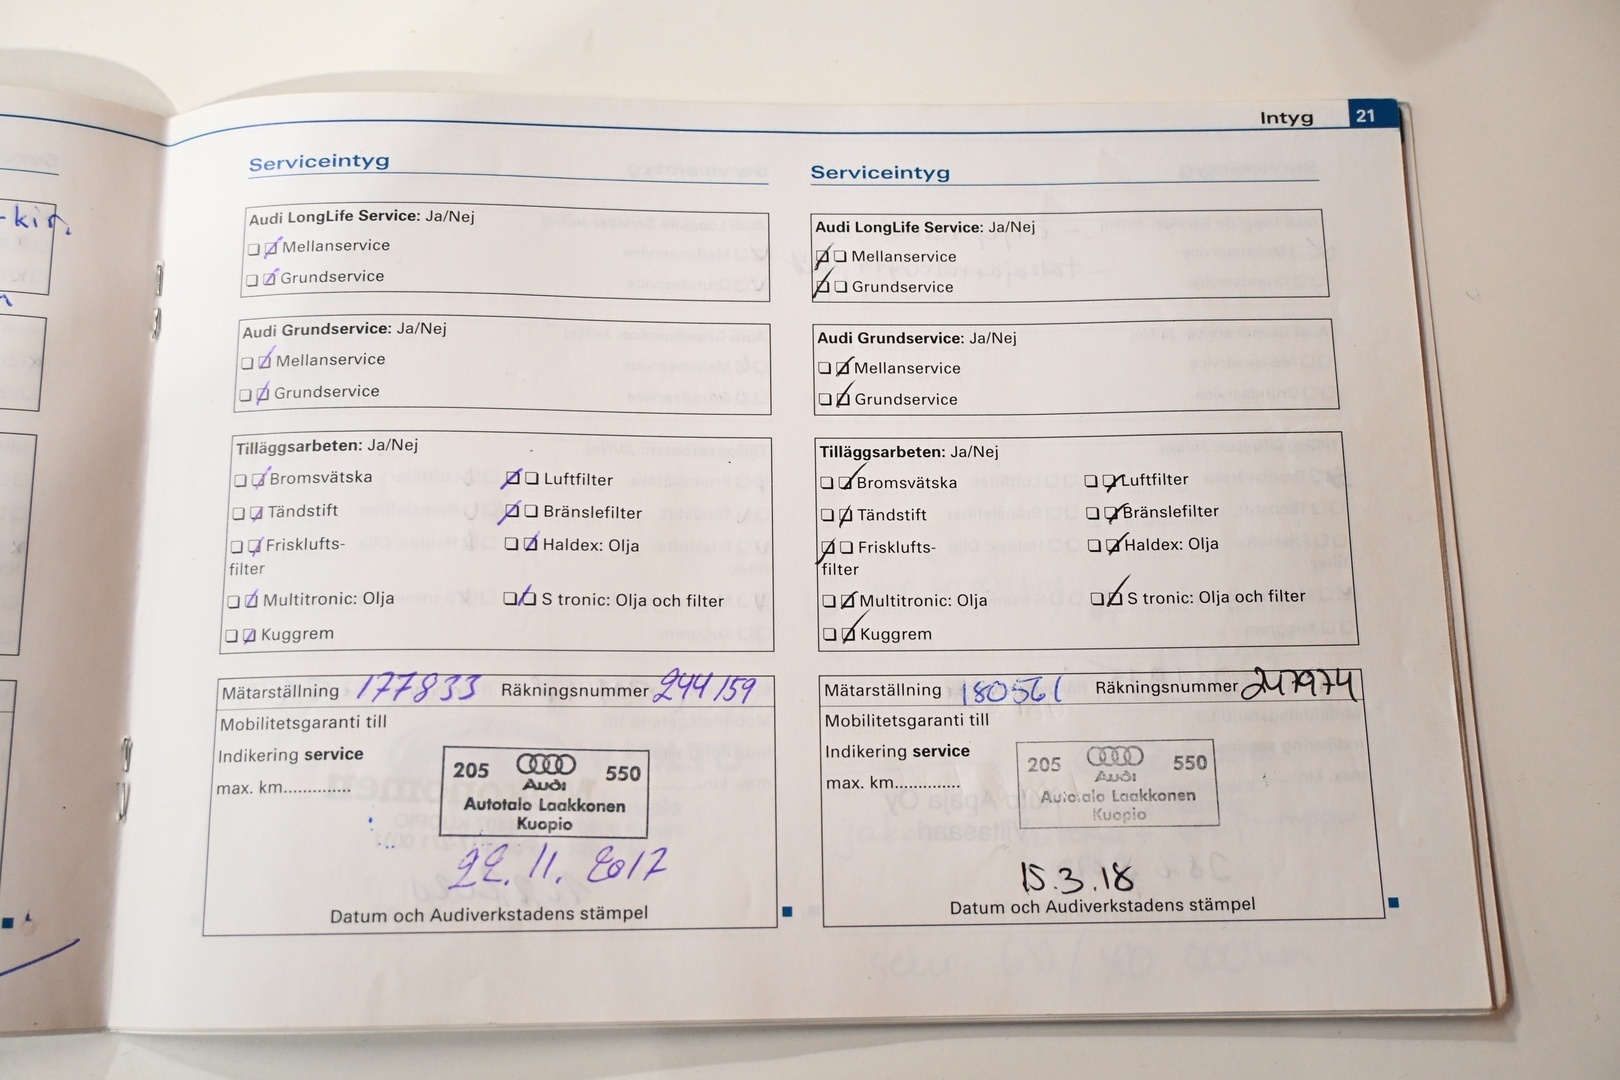 Intyg 21
Serviceintyg
Audi LongLife Service: Ja/Nej
Mellanservice
Grundservice
Audi Grundservice: Ja/Nej
Mellanservice
Grundservice
Tilläggsarbeten: Ja/Nej
Bromsvätska Luftfilter
Tändstift Bränslefilter
Frisklufts- Haldex: Olja
filter
Multitronic: Olja S tronic: Olja och filter
Kuggrem
Mätarställning 177833 Räkningsnummer 244159
Mobilitetsgaranti till
Indikering service
max. km..............
205 550
Audi
Autotalo Laakkonen
Kuopio
22.11.2017
Datum och Audiverkstadens stämpel
Serviceintyg
Audi LongLife Service: Ja/Nej
Mellanservice
Grundservice
Audi Grundservice: Ja/Nej
Mellanservice
Grundservice
Tilläggsarbeten: Ja/Nej
Bromsvätska Luftfilter
Tändstift Bränslefilter
Frisklufts- Haldex: Olja
filter
Multitronic: Olja S tronic: Olja och filter
Kuggrem
Mätarställning 180561 Räkningsnummer 247974
Mobilitetsgaranti till
Indikering service
max. km..............
205 550
Audi
Autotalo Laakkonen
Kuopio
15.3.18
Datum och Audiverkstadens stämpel